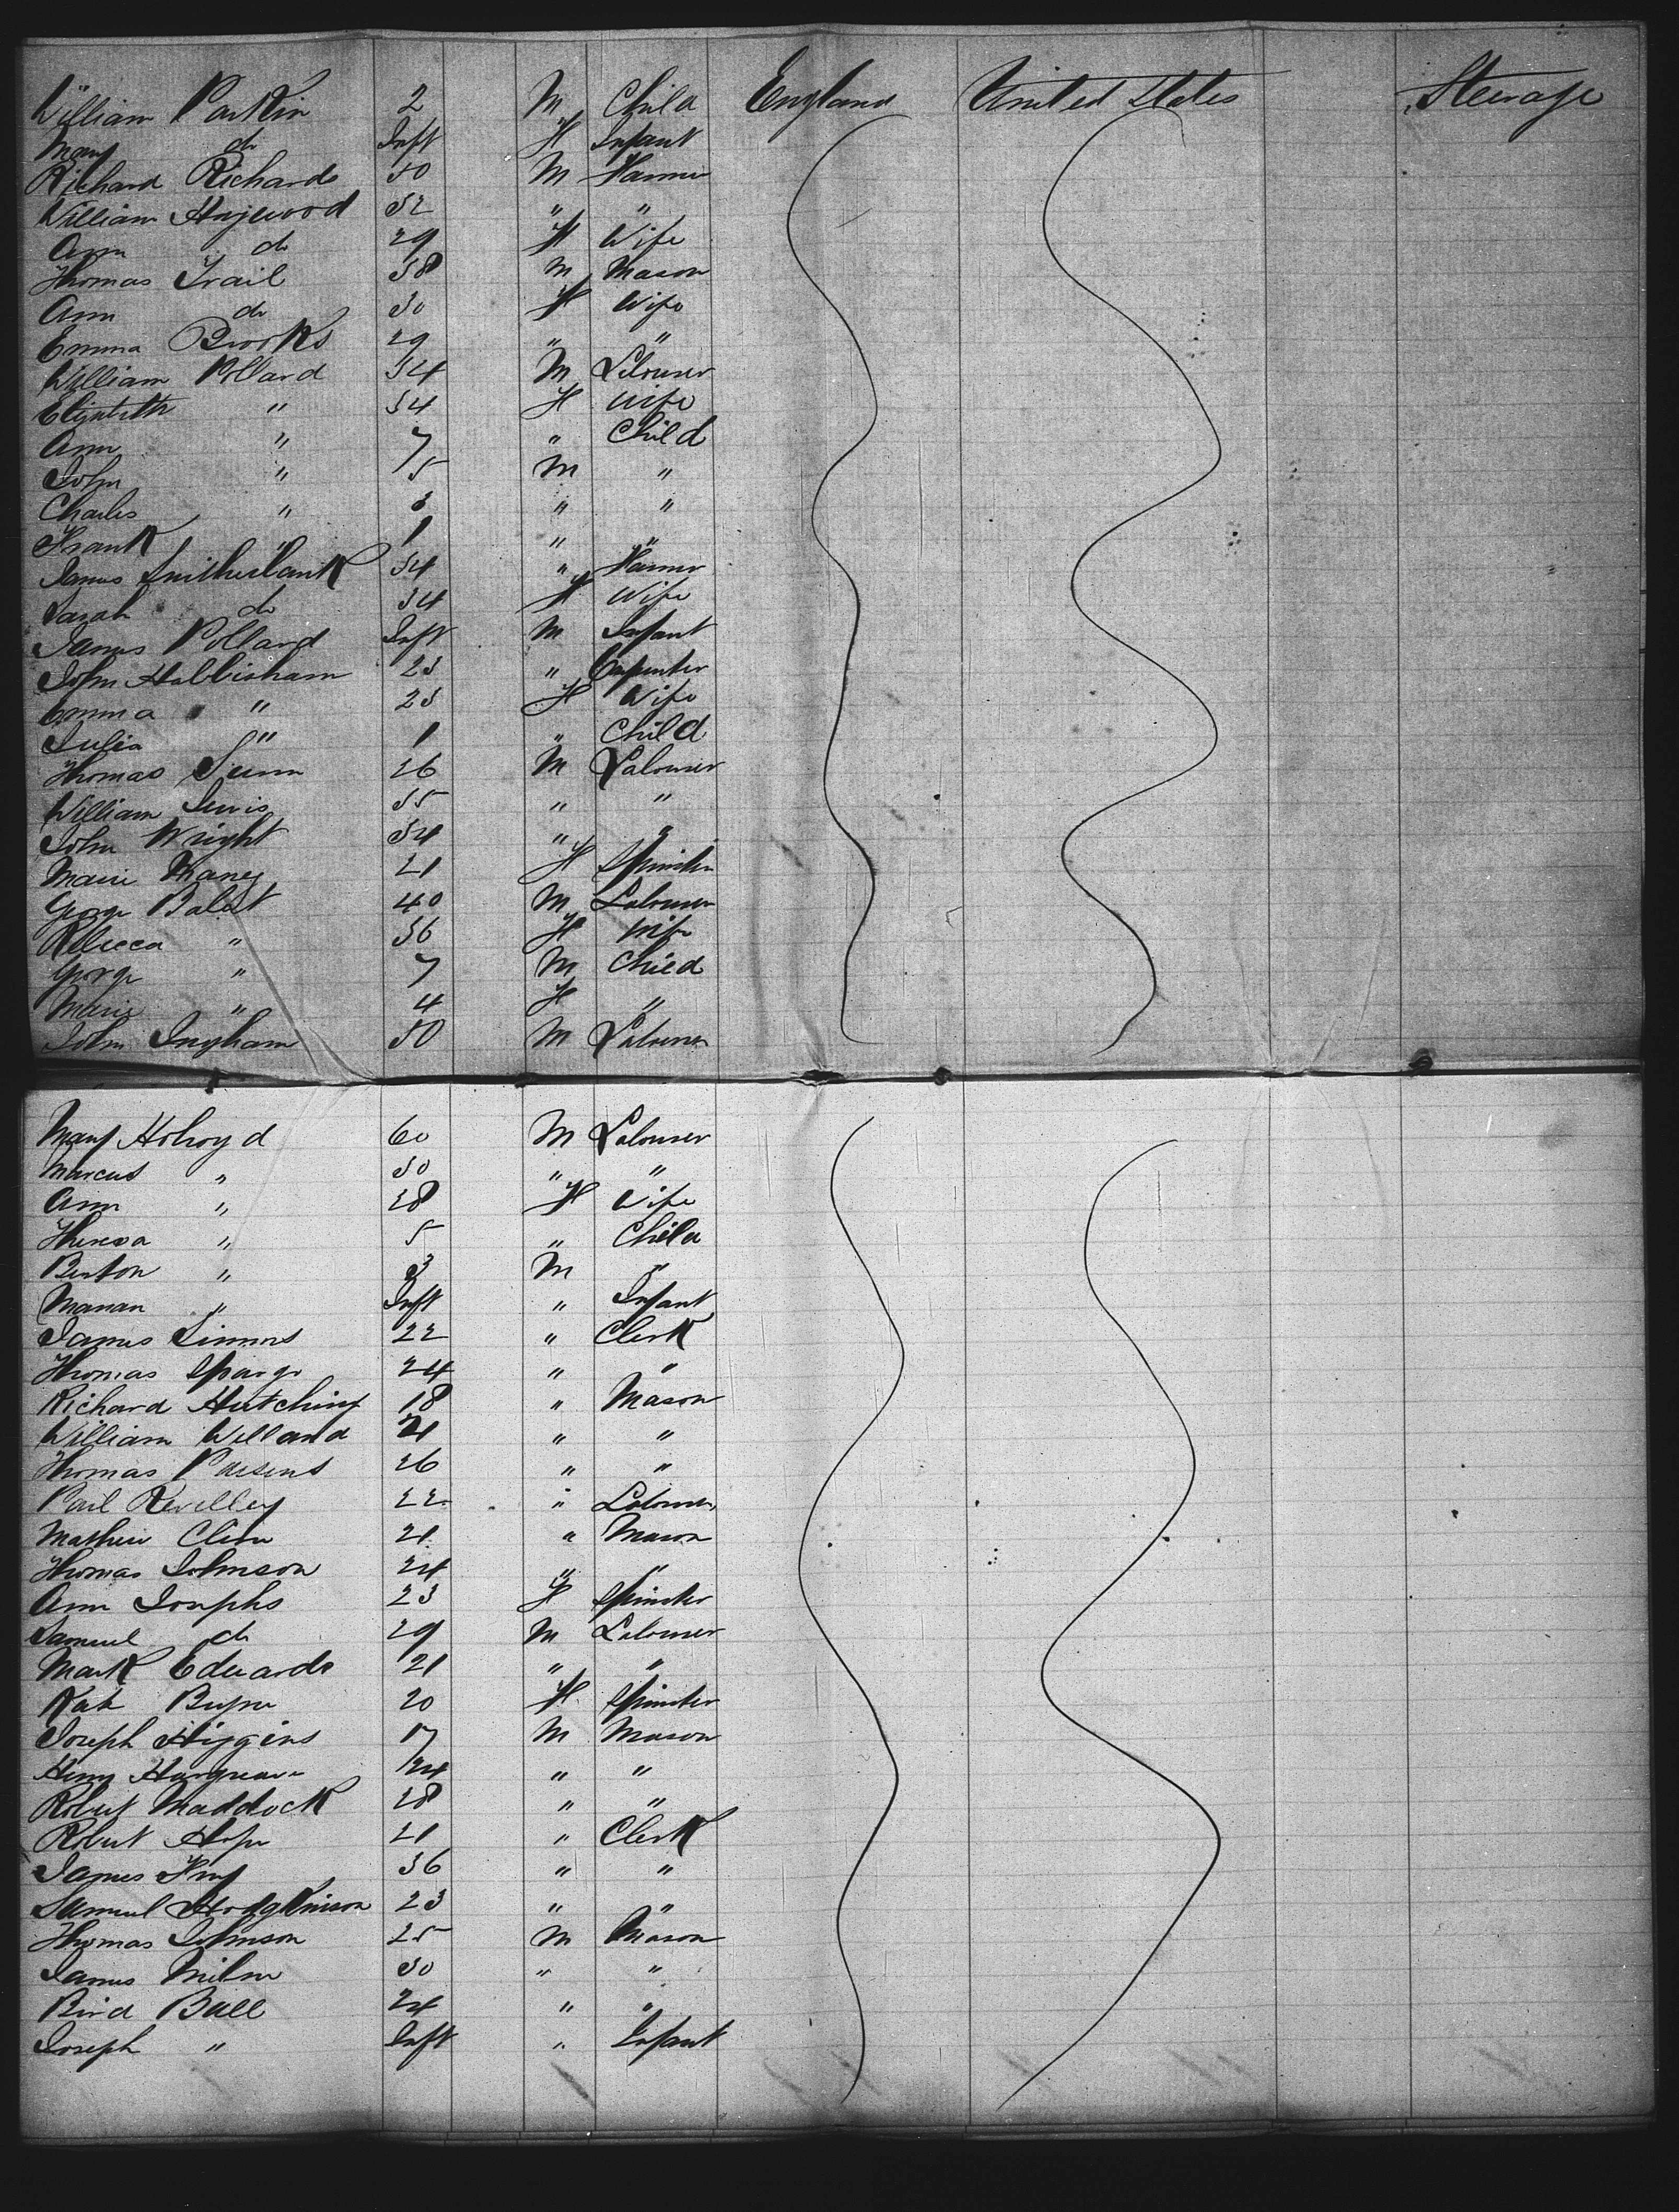 William Parkin 2 M Child England United States Steerage
Mary do Inft F Infant
Richard Richards 50 M Farmer
William Hazewood 32 " "
Ann do 29 F Wife
Thomas Trail 38 M Mason
Ann do 30 F Wife
Emma Brooks 29 " "
William Pollard 34 M Labourer
Elizabeth " 34 F Wife
Ann " 7 " Child
John " 5 M "
Charles " 3 " "
Frank " 1 " "
James Smitherbank 34 " Farmer
Sarah do 34 F Wife
James Pollard Inft M Infant
John Habbisham 23 " Carpenter
Emma " 23 F Wife
Julia " 1 " Child
Thomas 26 M Labourer
William Lewis 35 " "
John Wright 34 " "
Marie Maney 21 F Spinster
George 40 M Labourer
Rebecca " 36 F Wife
George " 7 M Child
Marie " 4 F "
John Ingham 50 M Labourer
Mary Holroyd 60 M Labourer
Marcus " 30 " "
Ann " 28 F Wife
Theresa " 5 " Child
Benton " 3 M "
Marian " Inft " Infant
James Simmons 22 " Clerk
Thomas Spargo 24 " "
Richard Hutchings 18 " Mason
William Willand 21 " "
Thomas Parsens 26 " "
Paul Revelley 22 " Labourer
Mathew 21 " Mason
Thomas Johnson 24 " "
Ann Josephs 23 F Spinster
Samuel do 29 M Labourer
Mark Edwards 21 " "
Kate 20 F Spinster
Joseph Higgins 17 M Mason
Henry Hargreave 24 " "
Robert Maddock 28 " "
Robert Hope 21 " Clerk
James 36 " "
Samuel Hodgkinson 23 " "
Thomas Johnson 25 M Mason
James Milne 30 " "
Bird Ball 24 " "
Joseph " Inft " Infant